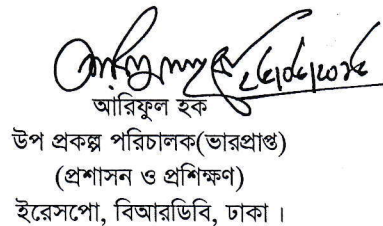 আরিফুল হক
উপ প্রকল্প পরিচালক(ভারপ্রাপ্ত)
(প্রশাসন ও প্রশিক্ষণ)
ইরেসপো, বিআরডিবি, ঢাকা ।